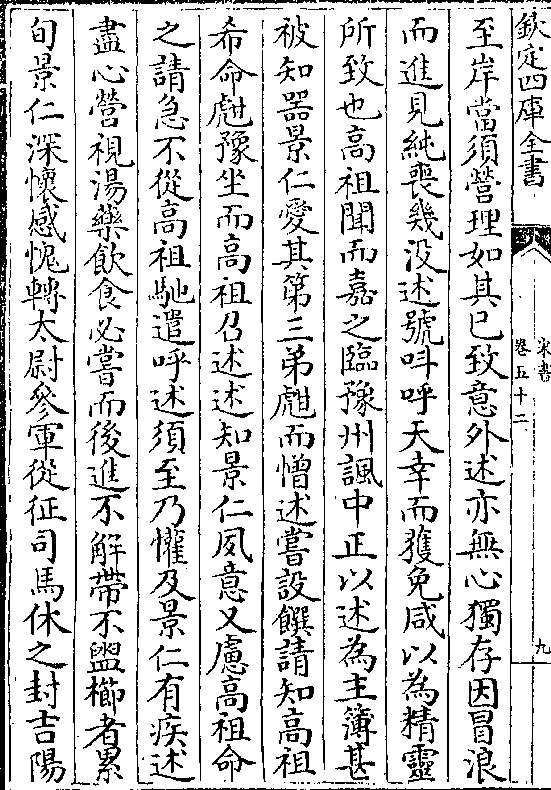 欽定四庫全書
宋書
卷五十二
九
至岸當須營理如其已致意外述亦無心獨存因冒浪
而進見純喪幾没述號呌呼天幸而獲免咸以為精靈
所致也高祖聞而嘉之臨豫州諷中正以述為主簿甚
被知器景仁愛其第三弟甝而憎述嘗設饌請知高祖
希命甝豫坐而高祖召述述知景仁夙意又慮高祖命
之請急不從高祖馳遣呼述須至乃懽及景仁有疾述
盡心營視湯藥飲食必嘗而後進不解帶不盥櫛者累
旬景仁深懐感愧轉太尉參軍從征司馬休之封吉陽